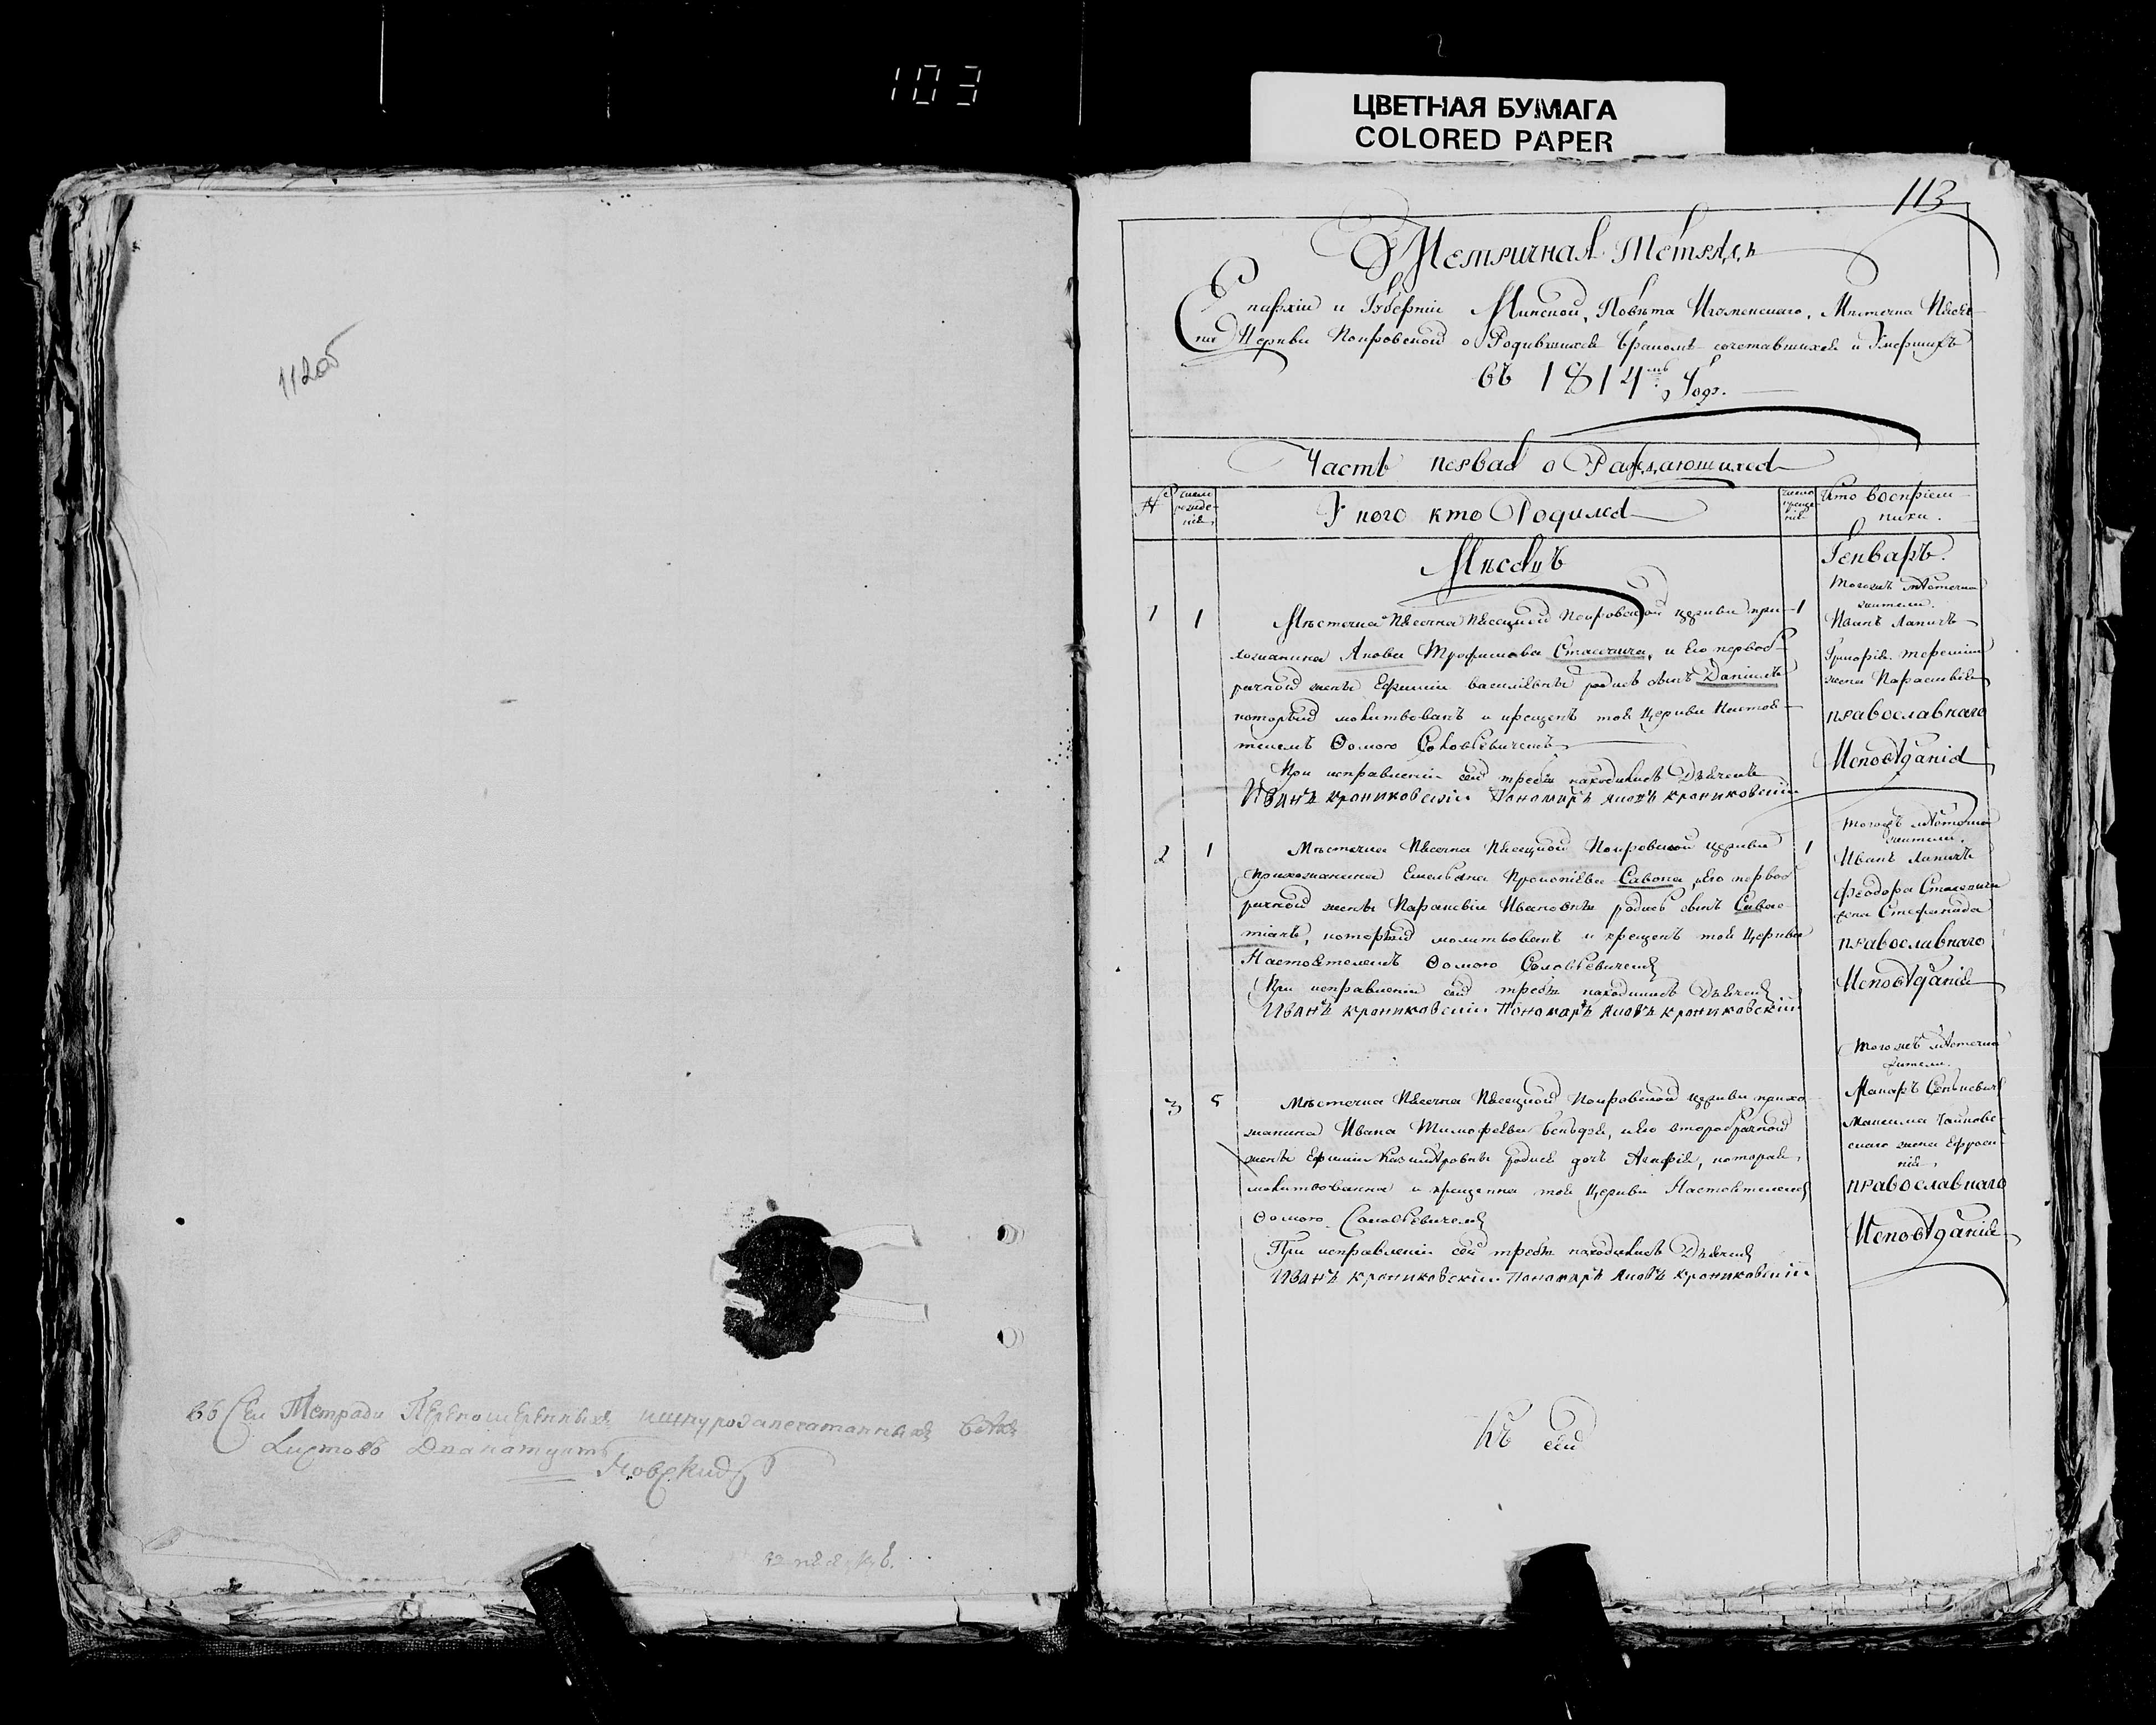 103
ЦВЕТНАЯ БУМАГА
COLORED PAPER
112об
Въ Сей Тетради Переномеренныхъ шнурозапечатанныхъ всѣхъ
Листовъ Двенатцать
113
Метричная Тетрадь
Епархіи и Губерніи Минской, Повѣта Игуменскаго, Мѣстечка Пѣсеч-
на Церкви Покровской о Родившихся Бракомъ сочетавшихся и Умершихъ
въ 1814мъ Годѣ.
Часть первая о Раждающихся
№ число рожде-нія
У кого кто Родился
число креще-нія
Кто воспріем-
ники.
Мѣсяцъ
Генварь.
1 1
Мѣстечка Пѣсечна Пѣсецкой Покровской церкви при-
хожанина Якова Трофимова Стасевича, и Его перво-
рачной жены Ефиміи Василіевны родися сынъ Даніилъ
который молитвованъ и крещенъ той Церкви Настоя-
телемъ Ѳомою Соловіевичемъ
При исправленіи сей требы находились Дьячекъ
Иванъ Крониковскій Пономаръ Яковъ Крониковскій
1
Тогожъ мѣстечка
жители.
Иванъ Лапичъ
жена Параскевія
православнаго
Исповѣданія
2 1
Мѣстечка Пѣсечна Пѣсецкой Покровской церкви
прихожанина Емельяна Прокопіева Савона, Его перво
рачной жены Параскевіи Ивановны родися сынъ Савас-
тіанъ, который молитвованъ и крещенъ той Церкви
Настоятелемъ Ѳомою Соловіевичемъ
При исправленіи сей требы находились Дьячекъ
Иванъ Крониковскій Пономаръ Яковъ Крониковскій
1
Тогожъ мѣстечка
жители.
Иванъ Лапичъ
Феодора Стасевича
жена Стефанида
православнаго
Исповѣданія
3 5
Мѣстечка Пѣсечна Пѣсецкой Покровской церкви прихо-
жанина Ивана Тимофеева Бендзя, и Его второбрачной
жены Ефиміи Казиміровны родися дочь Агафія, которая
молитвованна и крещенна той Церкви Настоятелемъ
Ѳомою Соловіевичемъ
При исправленіи сей требы находились Дьячекъ
Иванъ Крониковскій Пономаръ Яковъ Крониковскій
Тогожъ мѣстечка
жители.
Макаръ Сенкевичъ
Максима Чайковс-
каго жена Ефроси-
нія,
православнаго
Исповѣданія
Къ сей